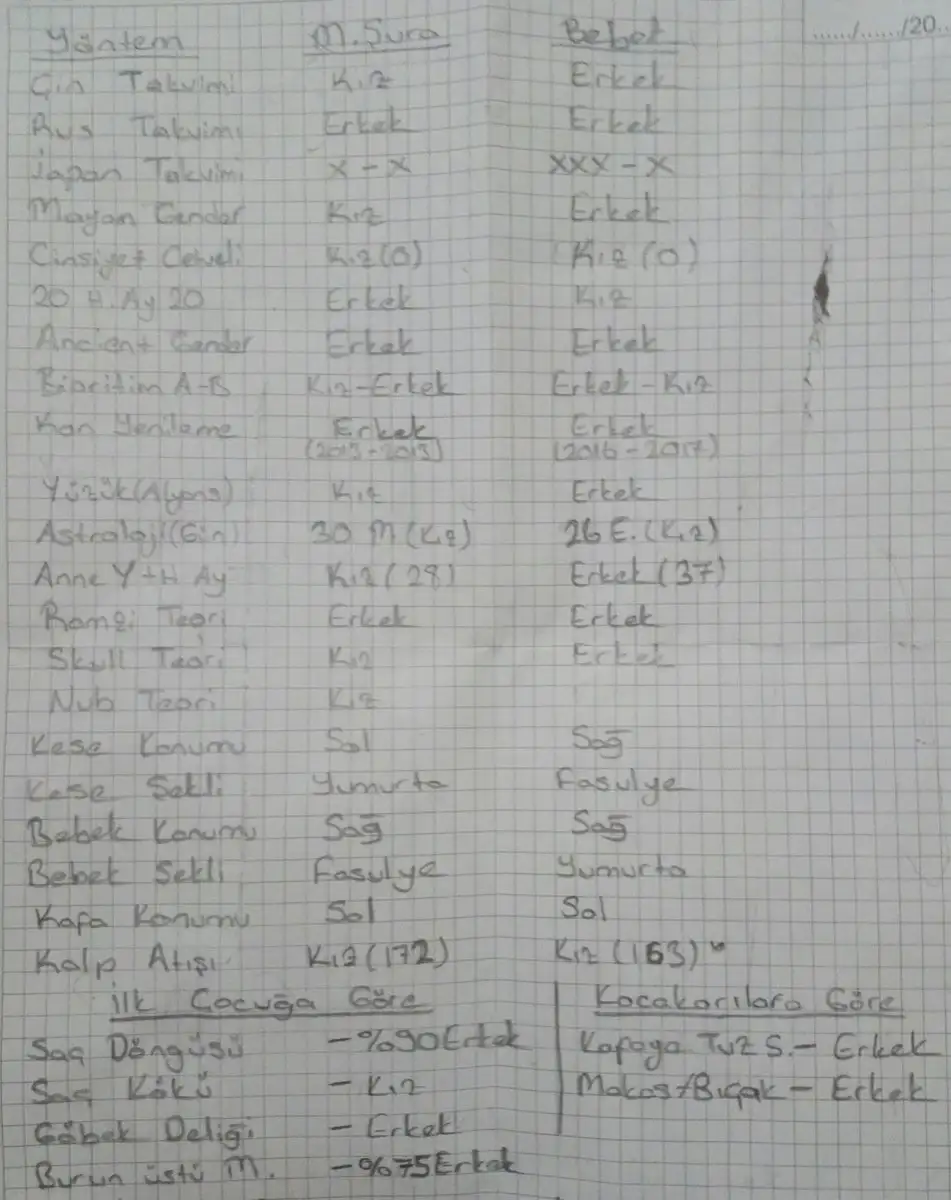 Yöntem M.Sura Bebek ....../....../20..
Çin Takvimi Kız Erkek
Rus Takvimi Erkek Erkek
Japan Takvimi X-X XXX-X
Mayan Gender Kız Erkek
Cinsiyet Cetveli Kız(0) Kız(0)
20 H. Ay 20 Erkek Kız
Ancient Gender Erkek Erkek
Bioritim A-B Kız-Erkek Erkek-Kız
Kan Yenileme Erkek Erkek
(2013-2013) (2016-2017)
Yüzük(Alyans) Kız Erkek
Astroloji(Çin) 30 M(Kız) 26 E.(Kız)
Anne Y+H Ay Kız(28) Erkek(37)
Ramzi Teori Erkek Erkek
Skull Teori Kız Erkek
Nub Teori Kız
Kese Konumu Sol Sağ
Kese Sekli Yumurta Fasulye
Bebek Konumu Sağ Sağ
Bebek Sekli Fasulye Yumurta
Kafa Konumu Sol Sol
Kalp Atışı Kız(172) Kız(163)
İlk Çocuğa Göre Kocakarılara Göre
Saç Döngüsü -%90Erkek Kafaya Tuz S.- Erkek
Saç Kökü - Kız Makas/Bıçak - Erkek
Göbek Deliği - Erkek
Burun üstü M. -%75Erkek